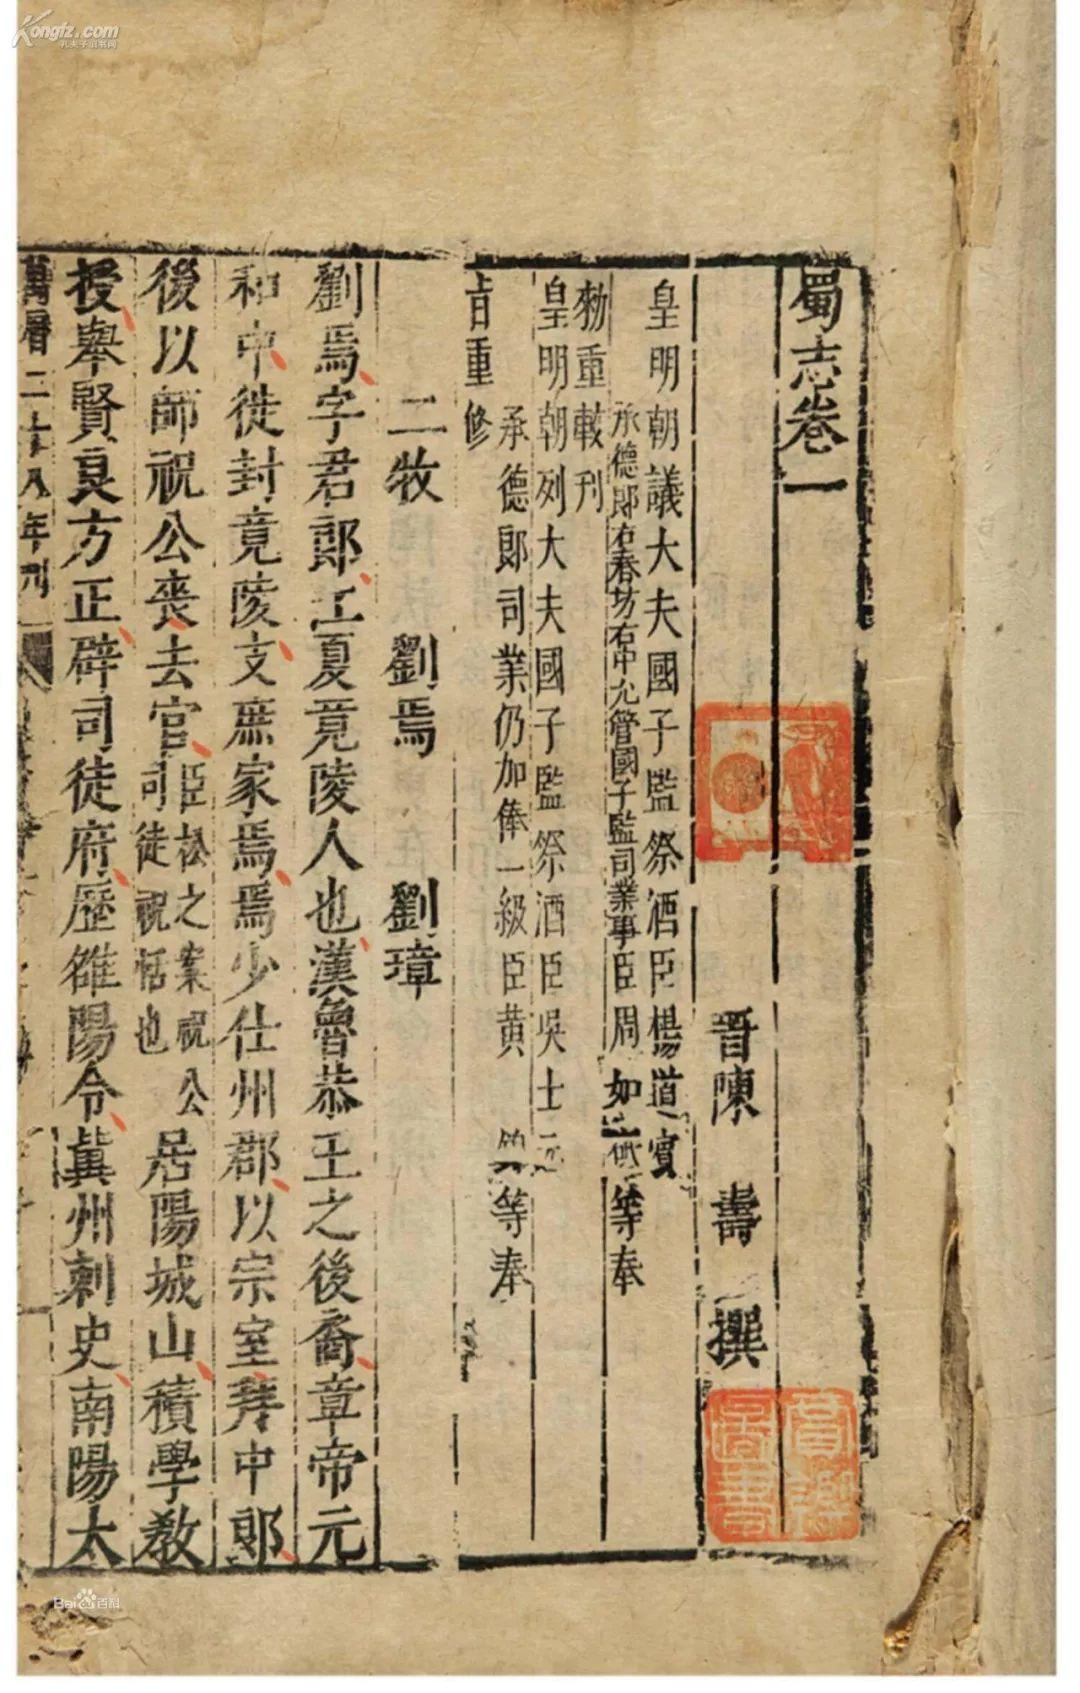 蜀志卷一
晉陳壽撰
皇明朝議大夫國子監祭酒臣楊道賓
承德郎右春坊右中允管國子監司業事臣周如砥等奉
勑重較刊
皇明朝列大夫國子監祭酒臣吳士元
承德郎司業仍加俸一級臣黃錦等奉
旨重修
二牧 劉焉 劉璋
劉焉字君郎江夏竟陵人也漢魯恭王之後裔章帝元
和中徙封竟陵支庶家焉焉少仕州郡以宗室拜中郎
後以師祝公喪去官臣松之案祝公司徒祝恬也居陽城山積學教
授舉賢良方正辟司徒府歷雒陽令冀州刺史南陽太
萬曆二十八年刊
Kongfz.com
孔夫子旧书网
Bai百科